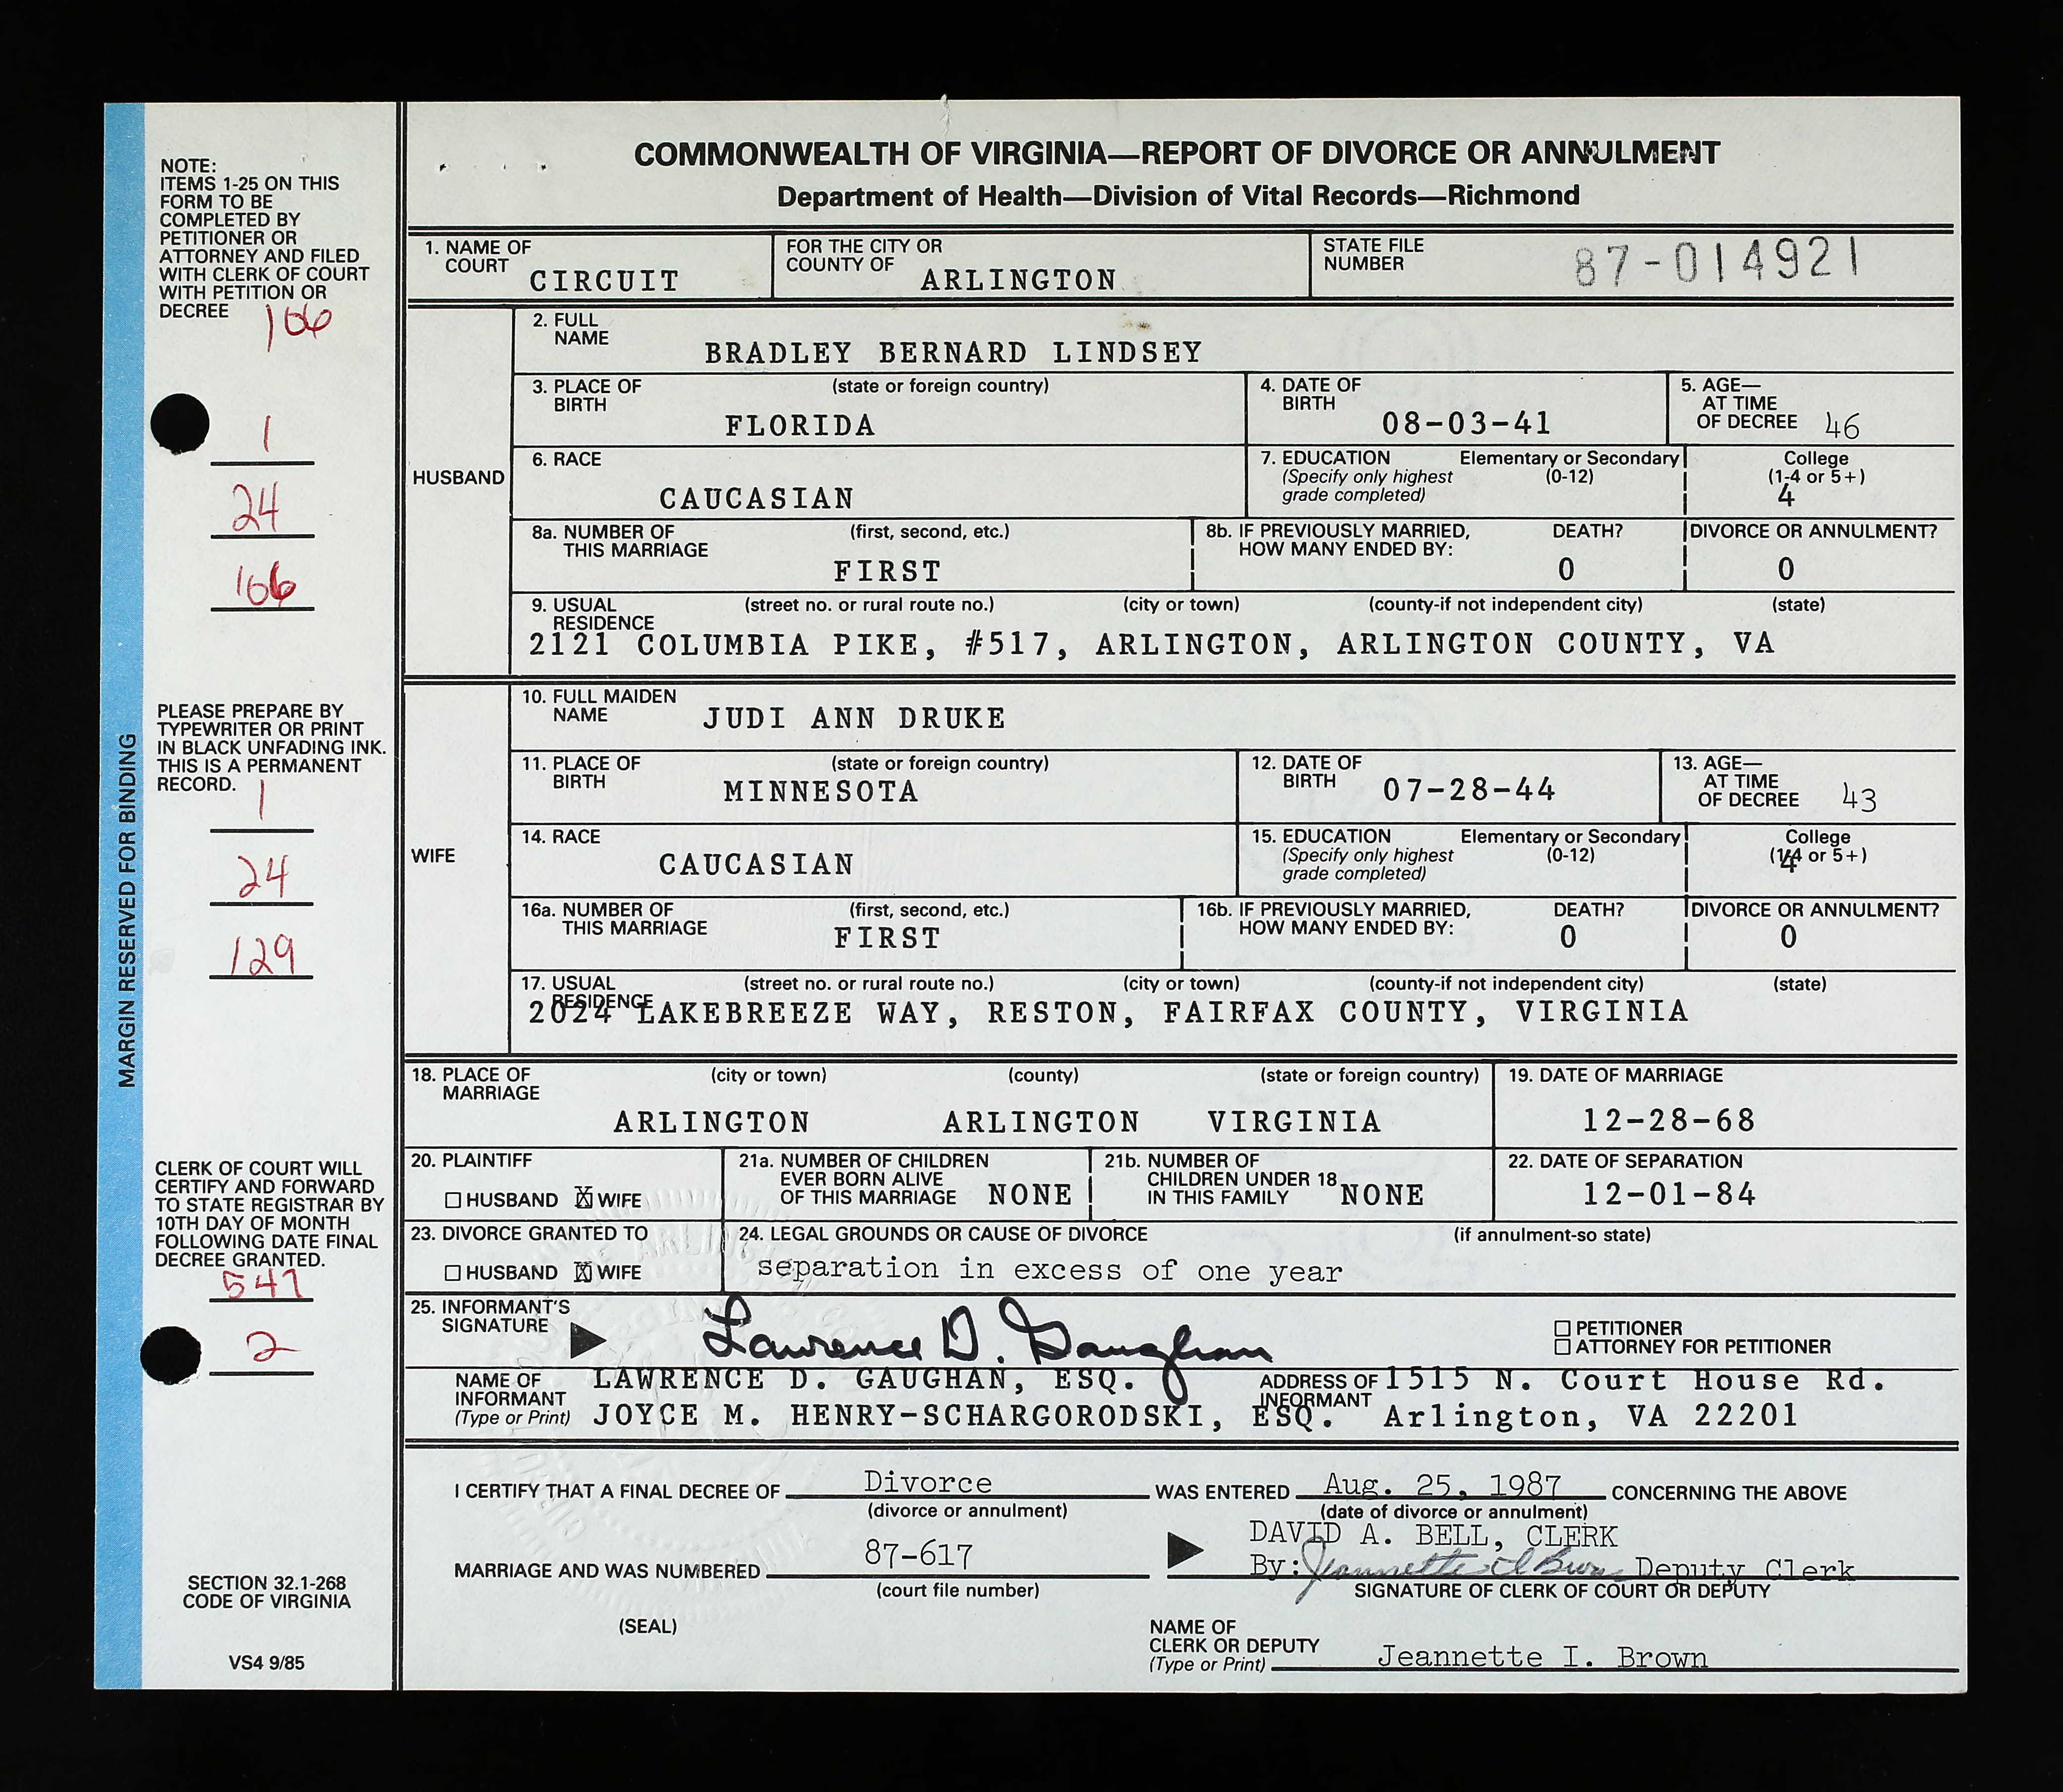 COMMONWEALTH OF VIRGINIA—REPORT OF DIVORCE OR ANNULMENT
Department of Health—Division of Vital Records—Richmond
NOTE:
ITEMS 1-25 ON THIS
FORM TO BE
COMPLETED BY
PETITIONER OR
ATTORNEY AND FILED
WITH CLERK OF COURT
WITH PETITION OR
DECREE 166
1
24
166
PLEASE PREPARE BY
TYPEWRITER OR PRINT
IN BLACK UNFADING INK.
THIS IS A PERMANENT
RECORD.
1
24
129
CLERK OF COURT WILL
CERTIFY AND FORWARD
TO STATE REGISTRAR BY
10TH DAY OF MONTH
FOLLOWING DATE FINAL
DECREE GRANTED.
547
2
SECTION 32.1-268
CODE OF VIRGINIA
VS4 9/85
MARGIN RESERVED FOR BINDING
1. NAME OF COURT CIRCUIT FOR THE CITY OR COUNTY OF ARLINGTON STATE FILE NUMBER 87-014921
HUSBAND
2. FULL NAME BRADLEY BERNARD LINDSEY
3. PLACE OF BIRTH (state or foreign country) FLORIDA 4. DATE OF BIRTH 08-03-41 5. AGE— AT TIME OF DECREE 46
6. RACE CAUCASIAN 7. EDUCATION (Specify only highest grade completed) Elementary or Secondary (0-12) College (1-4 or 5+) 4
8a. NUMBER OF THIS MARRIAGE (first, second, etc.) FIRST 8b. IF PREVIOUSLY MARRIED, HOW MANY ENDED BY: DEATH? 0 DIVORCE OR ANNULMENT? 0
9. USUAL RESIDENCE (street no. or rural route no.) (city or town) (county-if not independent city) (state)
2121 COLUMBIA PIKE, #517, ARLINGTON, ARLINGTON COUNTY, VA
WIFE
10. FULL MAIDEN NAME JUDI ANN DRUKE
11. PLACE OF BIRTH (state or foreign country) MINNESOTA 12. DATE OF BIRTH 07-28-44 13. AGE— AT TIME OF DECREE 43
14. RACE CAUCASIAN 15. EDUCATION (Specify only highest grade completed) Elementary or Secondary (0-12) College (1-4 or 5+) 4
16a. NUMBER OF THIS MARRIAGE (first, second, etc.) FIRST 16b. IF PREVIOUSLY MARRIED, HOW MANY ENDED BY: DEATH? 0 DIVORCE OR ANNULMENT? 0
17. USUAL RESIDENCE (street no. or rural route no.) (city or town) (county-if not independent city) (state)
2024 LAKEBREEZE WAY, RESTON, FAIRFAX COUNTY, VIRGINIA
18. PLACE OF MARRIAGE (city or town) (county) (state or foreign country) 19. DATE OF MARRIAGE
ARLINGTON ARLINGTON VIRGINIA 12-28-68
20. PLAINTIFF HUSBAND X WIFE 21a. NUMBER OF CHILDREN EVER BORN ALIVE OF THIS MARRIAGE NONE 21b. NUMBER OF CHILDREN UNDER 18 IN THIS FAMILY NONE 22. DATE OF SEPARATION 12-01-84
23. DIVORCE GRANTED TO HUSBAND X WIFE 24. LEGAL GROUNDS OR CAUSE OF DIVORCE (if annulment-so state)
separation in excess of one year
25. INFORMANT'S SIGNATURE Lawrence D. Gaughan PETITIONER
ATTORNEY FOR PETITIONER
NAME OF INFORMANT (Type or Print) LAWRENCE D. GAUGHAN, ESQ. ADDRESS OF INFORMANT 1515 N. Court House Rd.
JOYCE M. HENRY-SCHARGORODSKI, ESQ. Arlington, VA 22201
I CERTIFY THAT A FINAL DECREE OF Divorce WAS ENTERED Aug. 25, 1987 CONCERNING THE ABOVE
(divorce or annulment) (date of divorce or annulment)
DAVID A. BELL, CLERK
MARRIAGE AND WAS NUMBERED 87-617 By: Jeannette I Brown Deputy Clerk
(court file number) SIGNATURE OF CLERK OF COURT OR DEPUTY
(SEAL)
NAME OF CLERK OR DEPUTY (Type or Print) Jeannette I. Brown